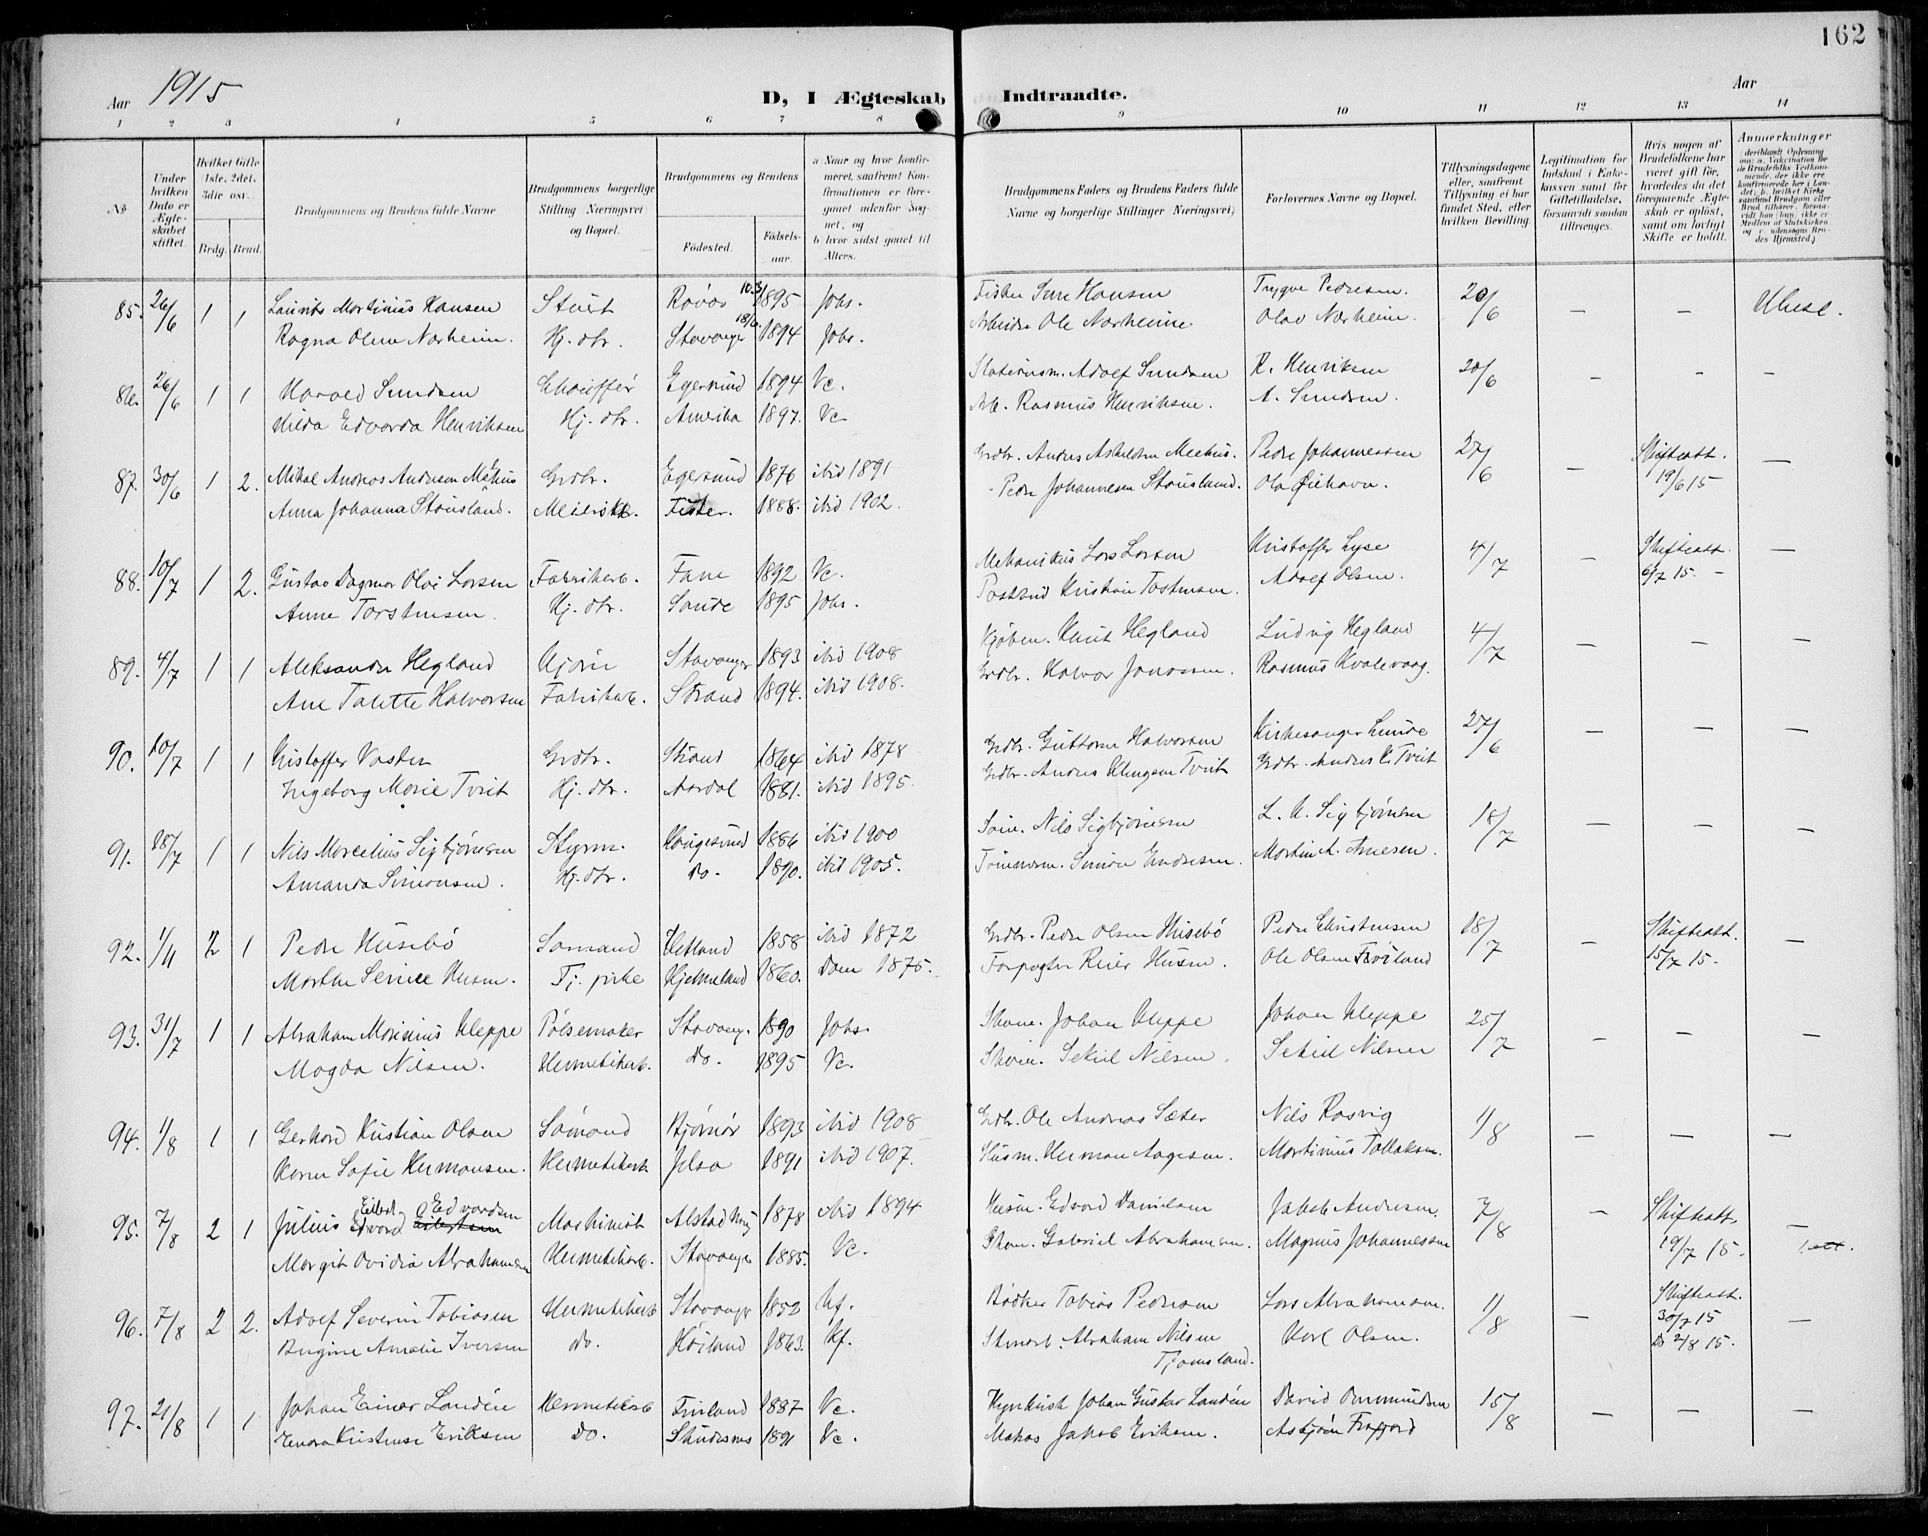 162
Aar 1915
D, I Ægteskab Indtraadte.
Aar
1 2 3 4 5 6 7 8 9 10 11 12 13 14
No
Under hvilken Dato er Ægteskabet stiftet
Hvilket Gifte 1ste, 2det, 3die osv.
Brdg. Brud.
Brudgommens og Brudens fulde Navne
Brudgommens borgerlige Stilling Næringsvei og Bopæl.
Brudgommens og Brudens
Fødested.
Fødselsaar.
a) Naar og hvor konfirmeret, saafremt Konfirmationen er foregaaet udenfor Sognet, og
b) hvor sidst gaaet til Alters.
Brudgommens Faders og Brudens Faders fulde Navne og borgerlige Stillinger Næringsvei)
Forlovernes Navne og Bopæl.
Tillysningsdagene eller, saafremt Tillysning ei har fundet Sted, efter hvilken Bevilling.
Legitimation for Indskud i Enkekassen samt for Giftetilladelse, forsaavidt saadan tiltrænges.
Hvis nogen af Brudefolkene har været gift før, hvorledes da det foregaaende Ægteskab er opløst, samt om lovligt Skifte er holdt.
Anmærkninger
85. 26/6 1 1 Laurits Mortinius Hansen Stuert 10.3 1895 Johs. Fisker Hansen Trygve Pedersen. 20/6 — —
Ragna Oline Nærheim. Hj. dtr. Stavanger 18/6 1894 Johs. Arbeider Ole Nærheim Olav Nærheim.
86. 26/6 1 1 Harald Sundsen Chauffør Egersund 1894 Vc. Adolf Sundsen R. Henriksen 20/6 — — —
Hilda Edvarda Henriksen Hj. dtr. Amerika 1897. Vc Arb. Rasmus Henriksen. A. Sundsen.
87. 30/6 1 2. Mikal Andreas Andersen Grdbr. Egersund 1876 ibid 1891 Grdbr. Anders Peder Johannessen 27/6 — Skifteatt. 19/6 15 —
Anna Johanna Stousland. Fister. 1888. ibid 1902. Peder Johannesen Stousland. Ola
88. 10/7 1 2. Gustav Dagmar Olai Larsen Fabrikarb. Fane 1892 Vc. Mekanikus Lars Larsen Kristoffer Lyse 4/7 — Skifteatt. 6/7 15. —
Anne Torstensen. Hj. dtr. Saude 1895 Johs. Kristian Tostensen. Adolf Olsen.
89. 4/7 1 1 Aleksander Hegland Stavanger 1893 ibid 1908 Kjøbm. Knut Hegland Ludvig Hegland 4/7 — — —
Ane Talette Halvorsen Fabrikarb. Strand 1894. ibid 1908. Grdbr. Halvor Jonassen. Rasmus Kvalevaag.
90. 10/7 1 1 Kristoffer Vasten Grdbr. Strand 1864 ibid 1878 Grdbr. Guttorm Halvorsen Kirkesanger Lunde 27/6 — — —
Ingeborg Marie Tveit Hj. dtr. Aardal 1881. ibid 1895. Grdbr. Anders Klungsen Tveit Grdbr. Anders K. Tveit
91. 18/7 1 1 Nils Marcelius Sigbjørnsen Styrm. Haugesund 1886 ibid 1900 Nils Sigbjørnsen L. A. Sigbjørnsen 18/7 — — —
Amanda Simonsen. Hj. dtr. Do. 1890. ibid 1905. Tømmerm. Simon Endresen. Martin A. Arnesen.
92. 1/11 2 1 Peder Husebø Sømand Hetland 1858 ibid 1872 Grdbr. Peder Olsen Husebø Peder Christensen 18/7 — Skifteatt. 15/7 15. —
Marthe Serine Husen. Tj. pike Hjelmeland 1860. Dom 1875. Forpagter Reier Husen. Ole Olsen Frøiland
93. 31/7 1 1 Abraham Kleppe Pølsemaker Stavang. 1890 Johs. Skom. Johan Kleppe Johan Kleppe 25/7 — — —
Magda Nilsen. Hermetikarb. Do. 1895 Vc. Sekiel Nilsen. Sekiel Nilsen
94. 1/8 1 1 Gerhard Kristian Olsen Sømand Bjørnør 1893 ibid 1908 Grdbr. Ole Andreas Sæter Nils Rasvig 1/8 — — —
Karen Sofie Hermansen. Hermetikarb. Jelsa 1891 ibid 1907. Husm. Herman Aagesen. Martinius Tollaksen.
95. 7/8 2 1 Julius Edvard Edvardsen Maskinist Alstadhoug 1878 ibid 1894 Husm. Edvard Danielsen Jakob Andersen. 7/8 — Skifteatt. 19/7 15. —
Margit Ovidia Abrahamsen Hermetikarb. Stavanger 1885. Vc. Skom. Gabriel Abrahamsen. Magnus Johannessen
96. 7/8 2 2. Adolf Severin Tobiasen Hermetikarb. Stavanger 1852 kf. Bødker Tobias Pedersen Lars Abrahamsen. 1/8 — Skifteatt. 30/7 15 Do 2/8 15. —
Amalie Iversen Do. Høiland 1863. kf. Abraham Nilsen Tjomsland. Karl Olsen.
97. 21/8 1 1 Johan Einar Landén Hermetikarb. Finland 1887 Vc. Johan Gustav Landén David Ommundsen 15/8 — — —
Kristense Eriksen Do. Skudesnes 1891 Vc. Jakob Eriksen. Asbjørn Frafjord